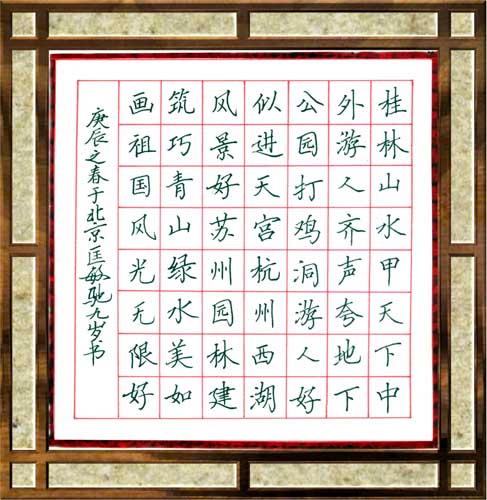 桂林山水甲天下中
外游人齐声夸地下
公园打鸡洞游人好
似进天宫杭州西湖
风景好苏州园林建
筑巧青山绿水美如
画祖国风光无限好
庚辰之春于北京匡敏驰九岁书